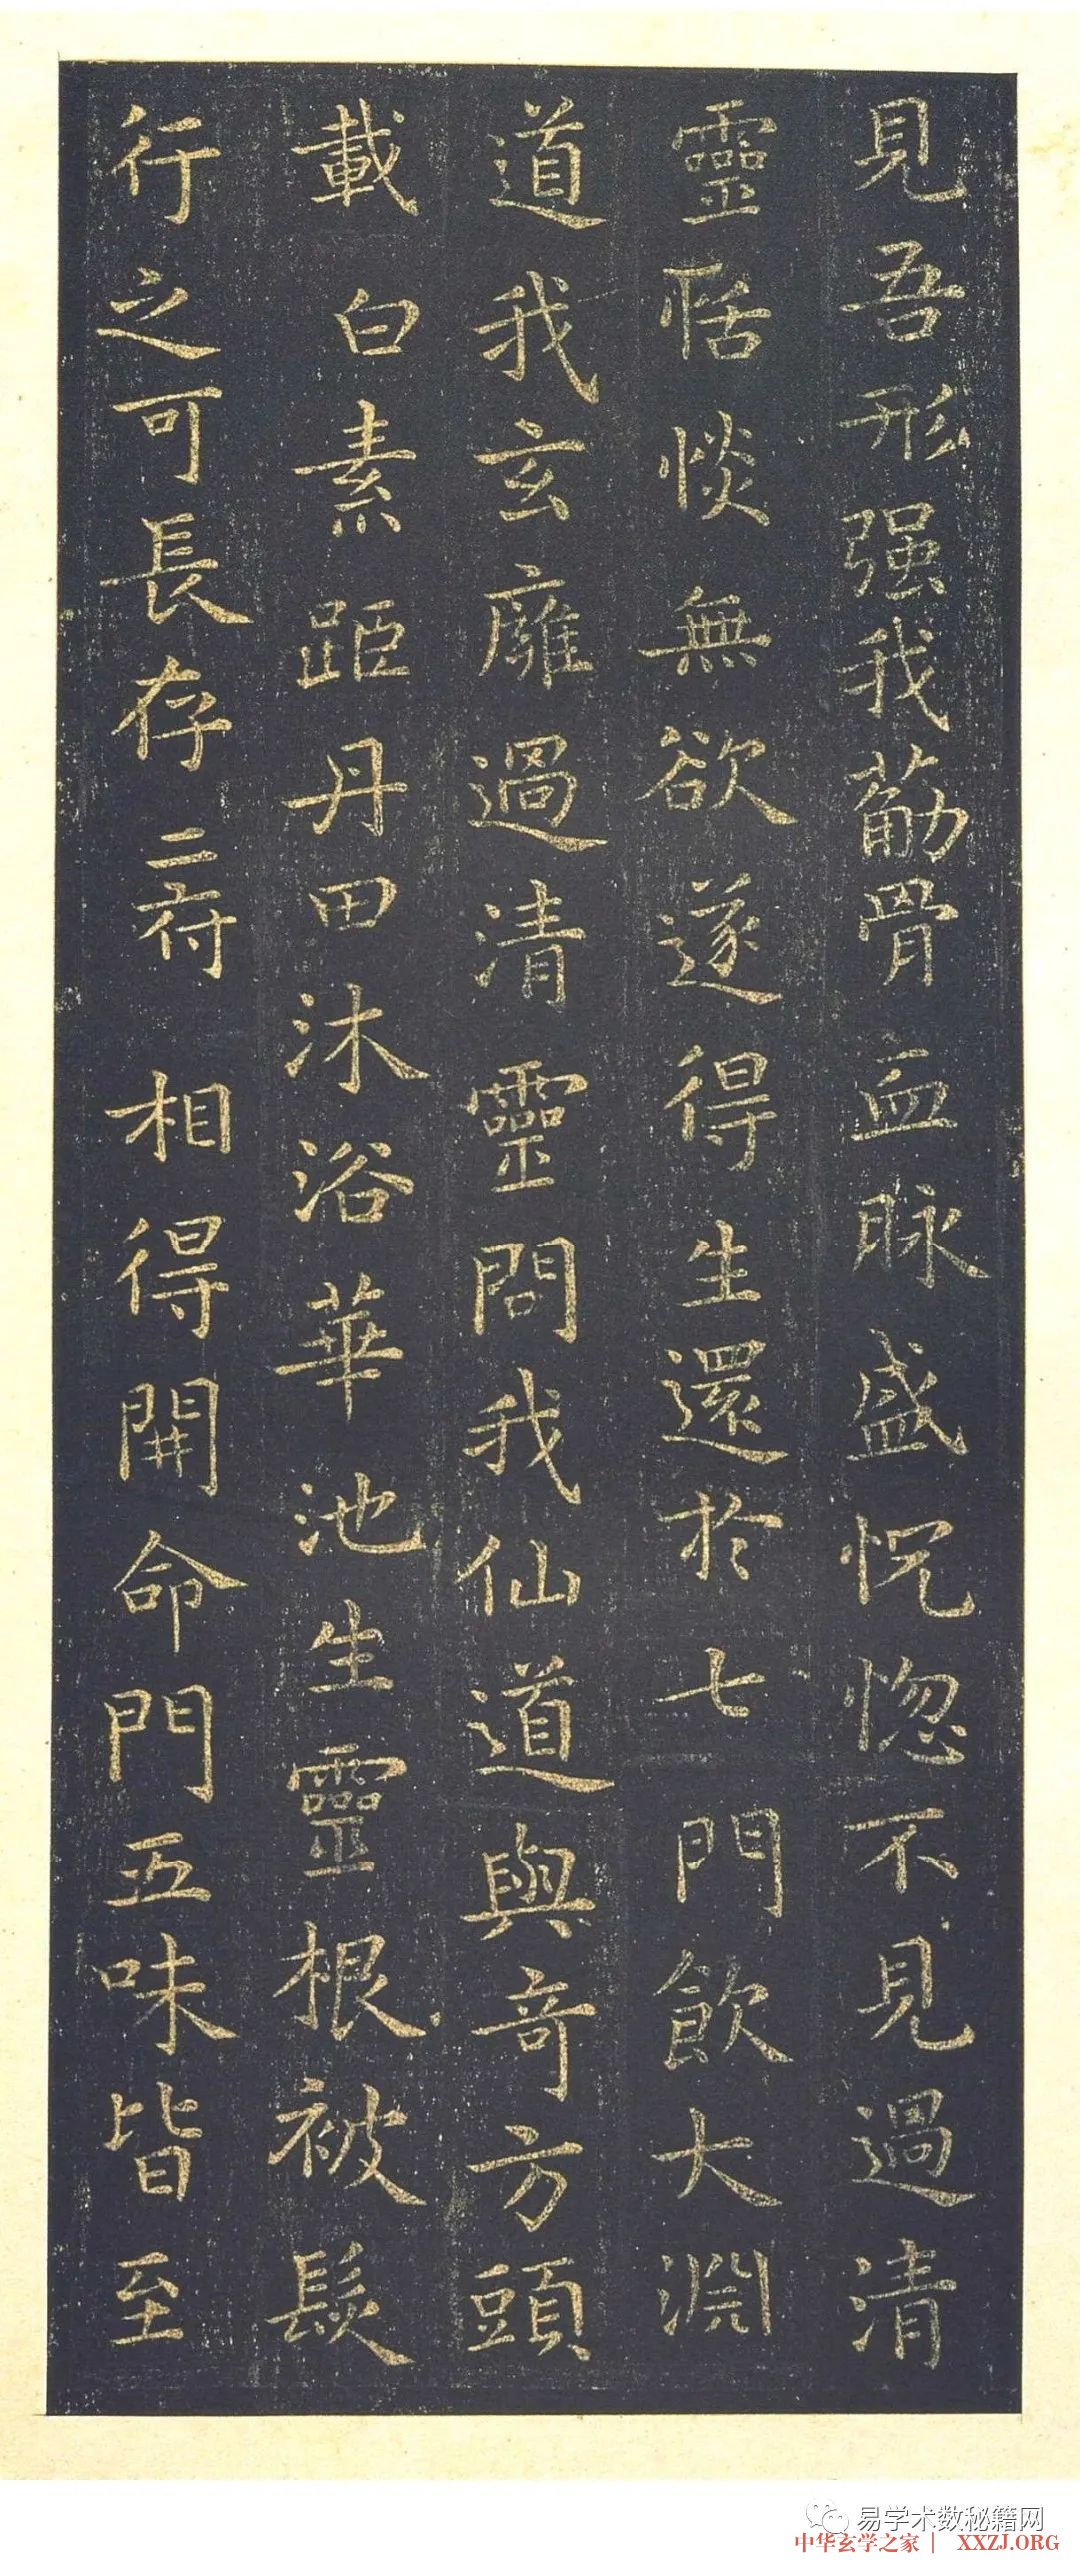 見吾形强我筋骨血脉盛恍惚不見過清
靈恬惔無欲遂得生還於七門飲大淵
道我玄廱過清靈問我仙道與奇方頭
載白素距丹田沐浴華池生靈根被髮
行之可長存二府相得開命門五味皆至
易学术数秘籍网
中华玄学之家｜ XXZJ.ORG